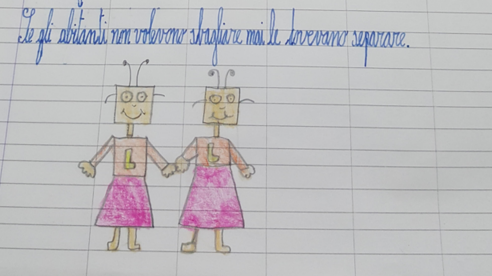 Se gli abitanti non volevono sbagliare mai le dovevano separare.
L L